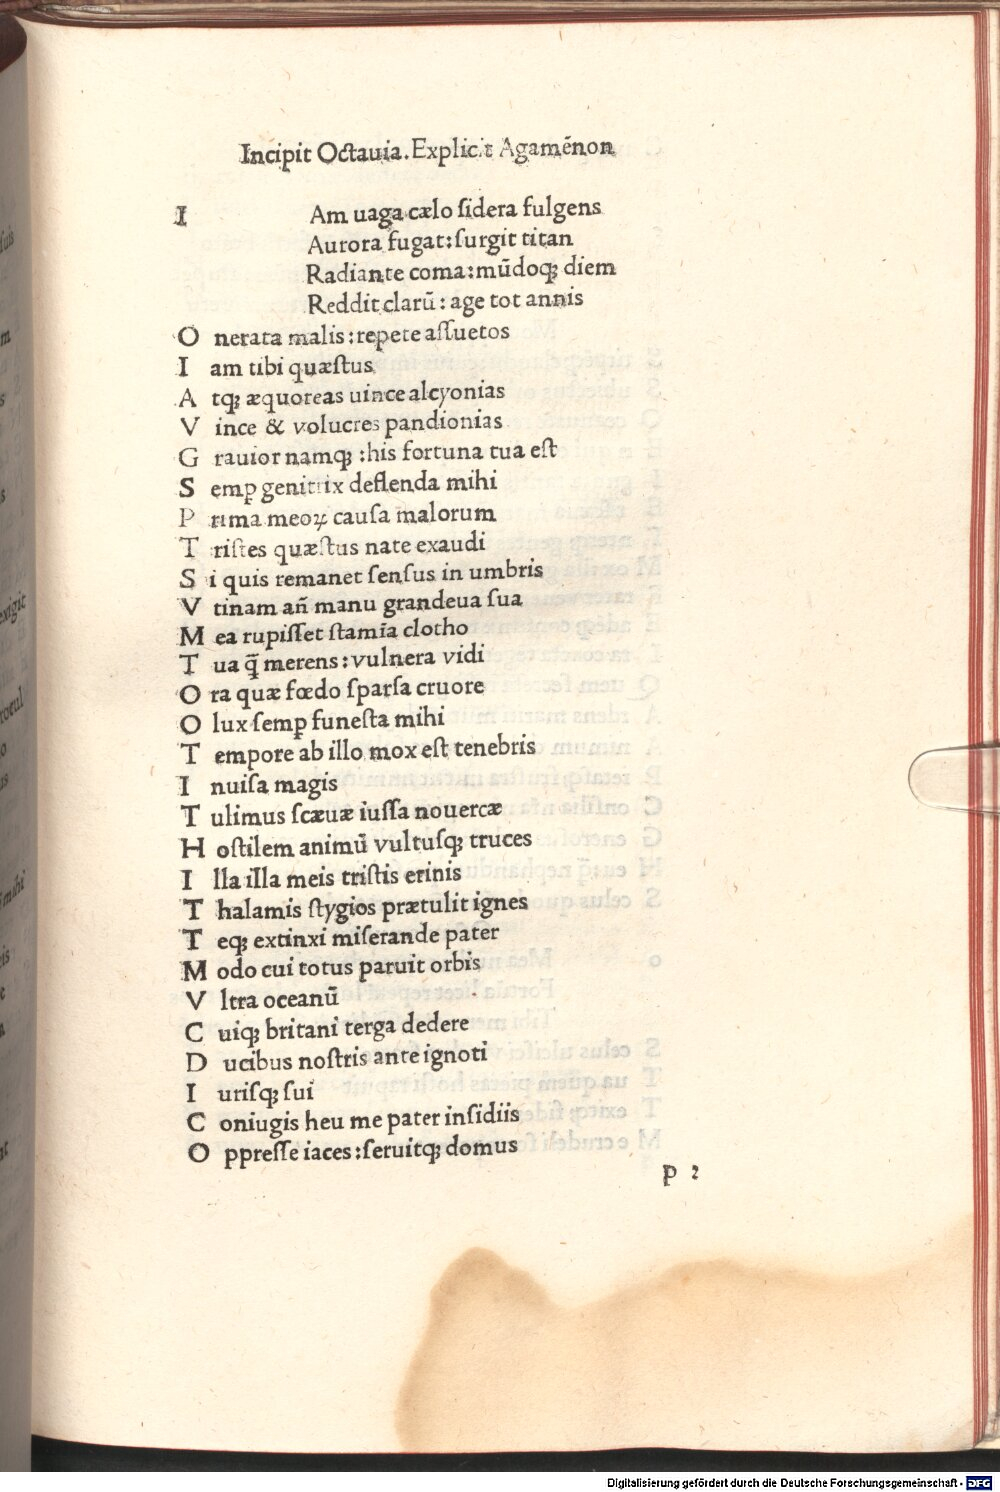 Incipit Octauia. Explicit Agamēnon
I Am uaga cælo ſidera fulgens
Aurora fugat: ſurgit titan
Radiante coma: mūdoqꝫ diem
Reddit clarū: age tot annis
O nerata malis: repete aſſuetos
I am tibi quæſtus
A tqꝫ æquoreas uince alcyonias
V ince & volucres pandionias
G rauior namqꝫ: his fortuna tua eſt
S emꝑ genitrix deflenda mihi
P rima meoꝝ cauſa malorum
T riſtes quæſtus nate exaudi
S i quis remanet ſenſus in umbris
V tinam añ manu grandeua ſua
M ea rupiſſet ſtamīa clotho
T ua q̄ merens: vulnera vidi
O ra quæ fœdo ſparſa cruore
O lux ſemꝑ funeſta mihi
T empore ab illo mox eſt tenebris
I nuiſa magis
T ulimus ſcæuæ iuſſa nouercæ
H oſtilem animū vultuſqꝫ truces
I lla illa meis triſtis erinis
T halamis ſtygios prætulit ignes
T eqꝫ extinxi miſerande pater
M odo cui totus paruit orbis
V ltra oceanū
C uiqꝫ britani terga dedere
D ucibus noſtris ante ignoti
I uriſqꝫ ſui
C oniugis heu me pater inſidiis
O ppreſſe iaces: ſeruitqꝫ domus
p 2
Digitalisierung gefördert durch die Deutsche Forschungsgemeinschaft - DFG